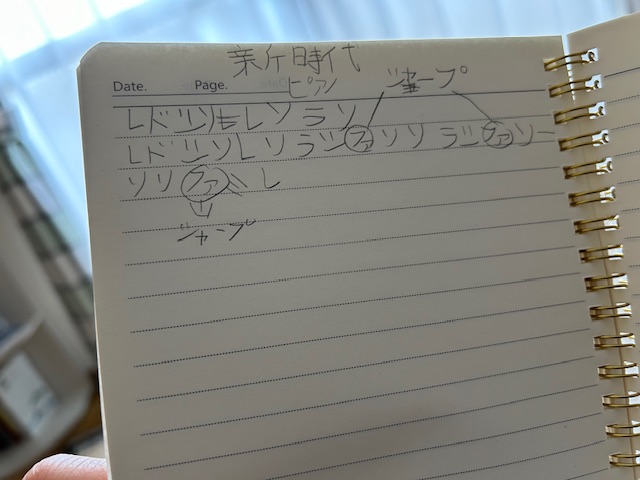 新斤時代
ピアノ
シャープ
Date. Page.
レドシソミレソラソ
レドシソレソラシファソソ ラシファソー
ソソファミレ
シャープ